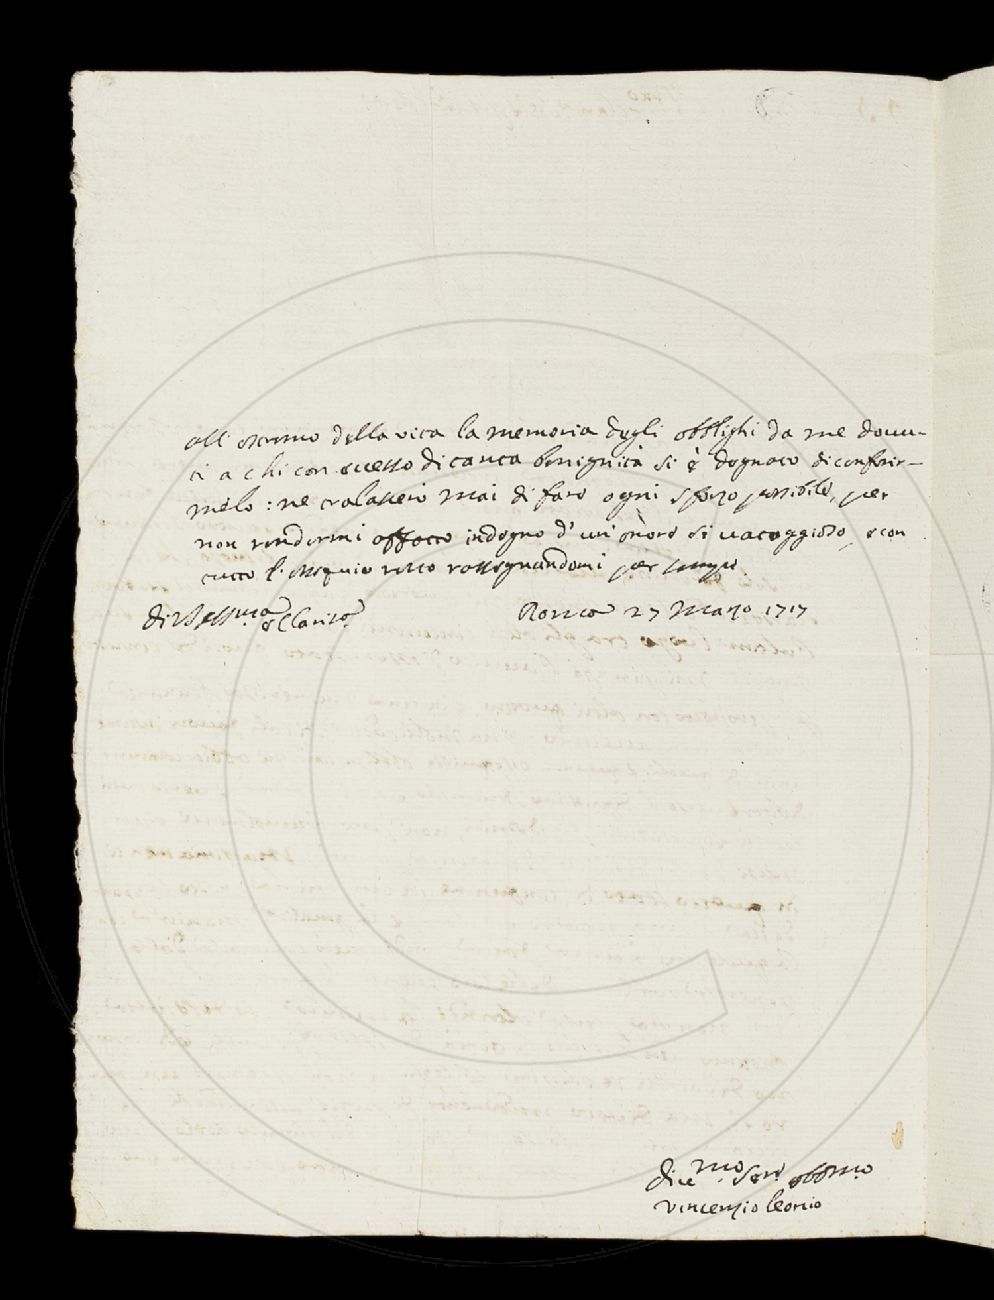 all' estremo della vita la memoria degli obblighi da me dovu-
ti a chi con eccesso di tanta benignità si è degnato di conferir-
melo: ne tralascierò mai di fare ogni sforzo possibile, per
non rendermi affatto indegno d'un' onore si vataggioso, e con
tutto l'ossequio resto rassegnandomi per sempre
di V.S. Illma e Clarisma
Roma 27 Marzo 1717
Divmo. Serv. obbmo
Vincenzio Leonio